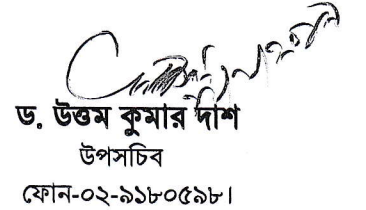 ড. উত্তম কুমার দাশ
উপসচিব
ফোন-০২-৯১৮০৫৯৮।